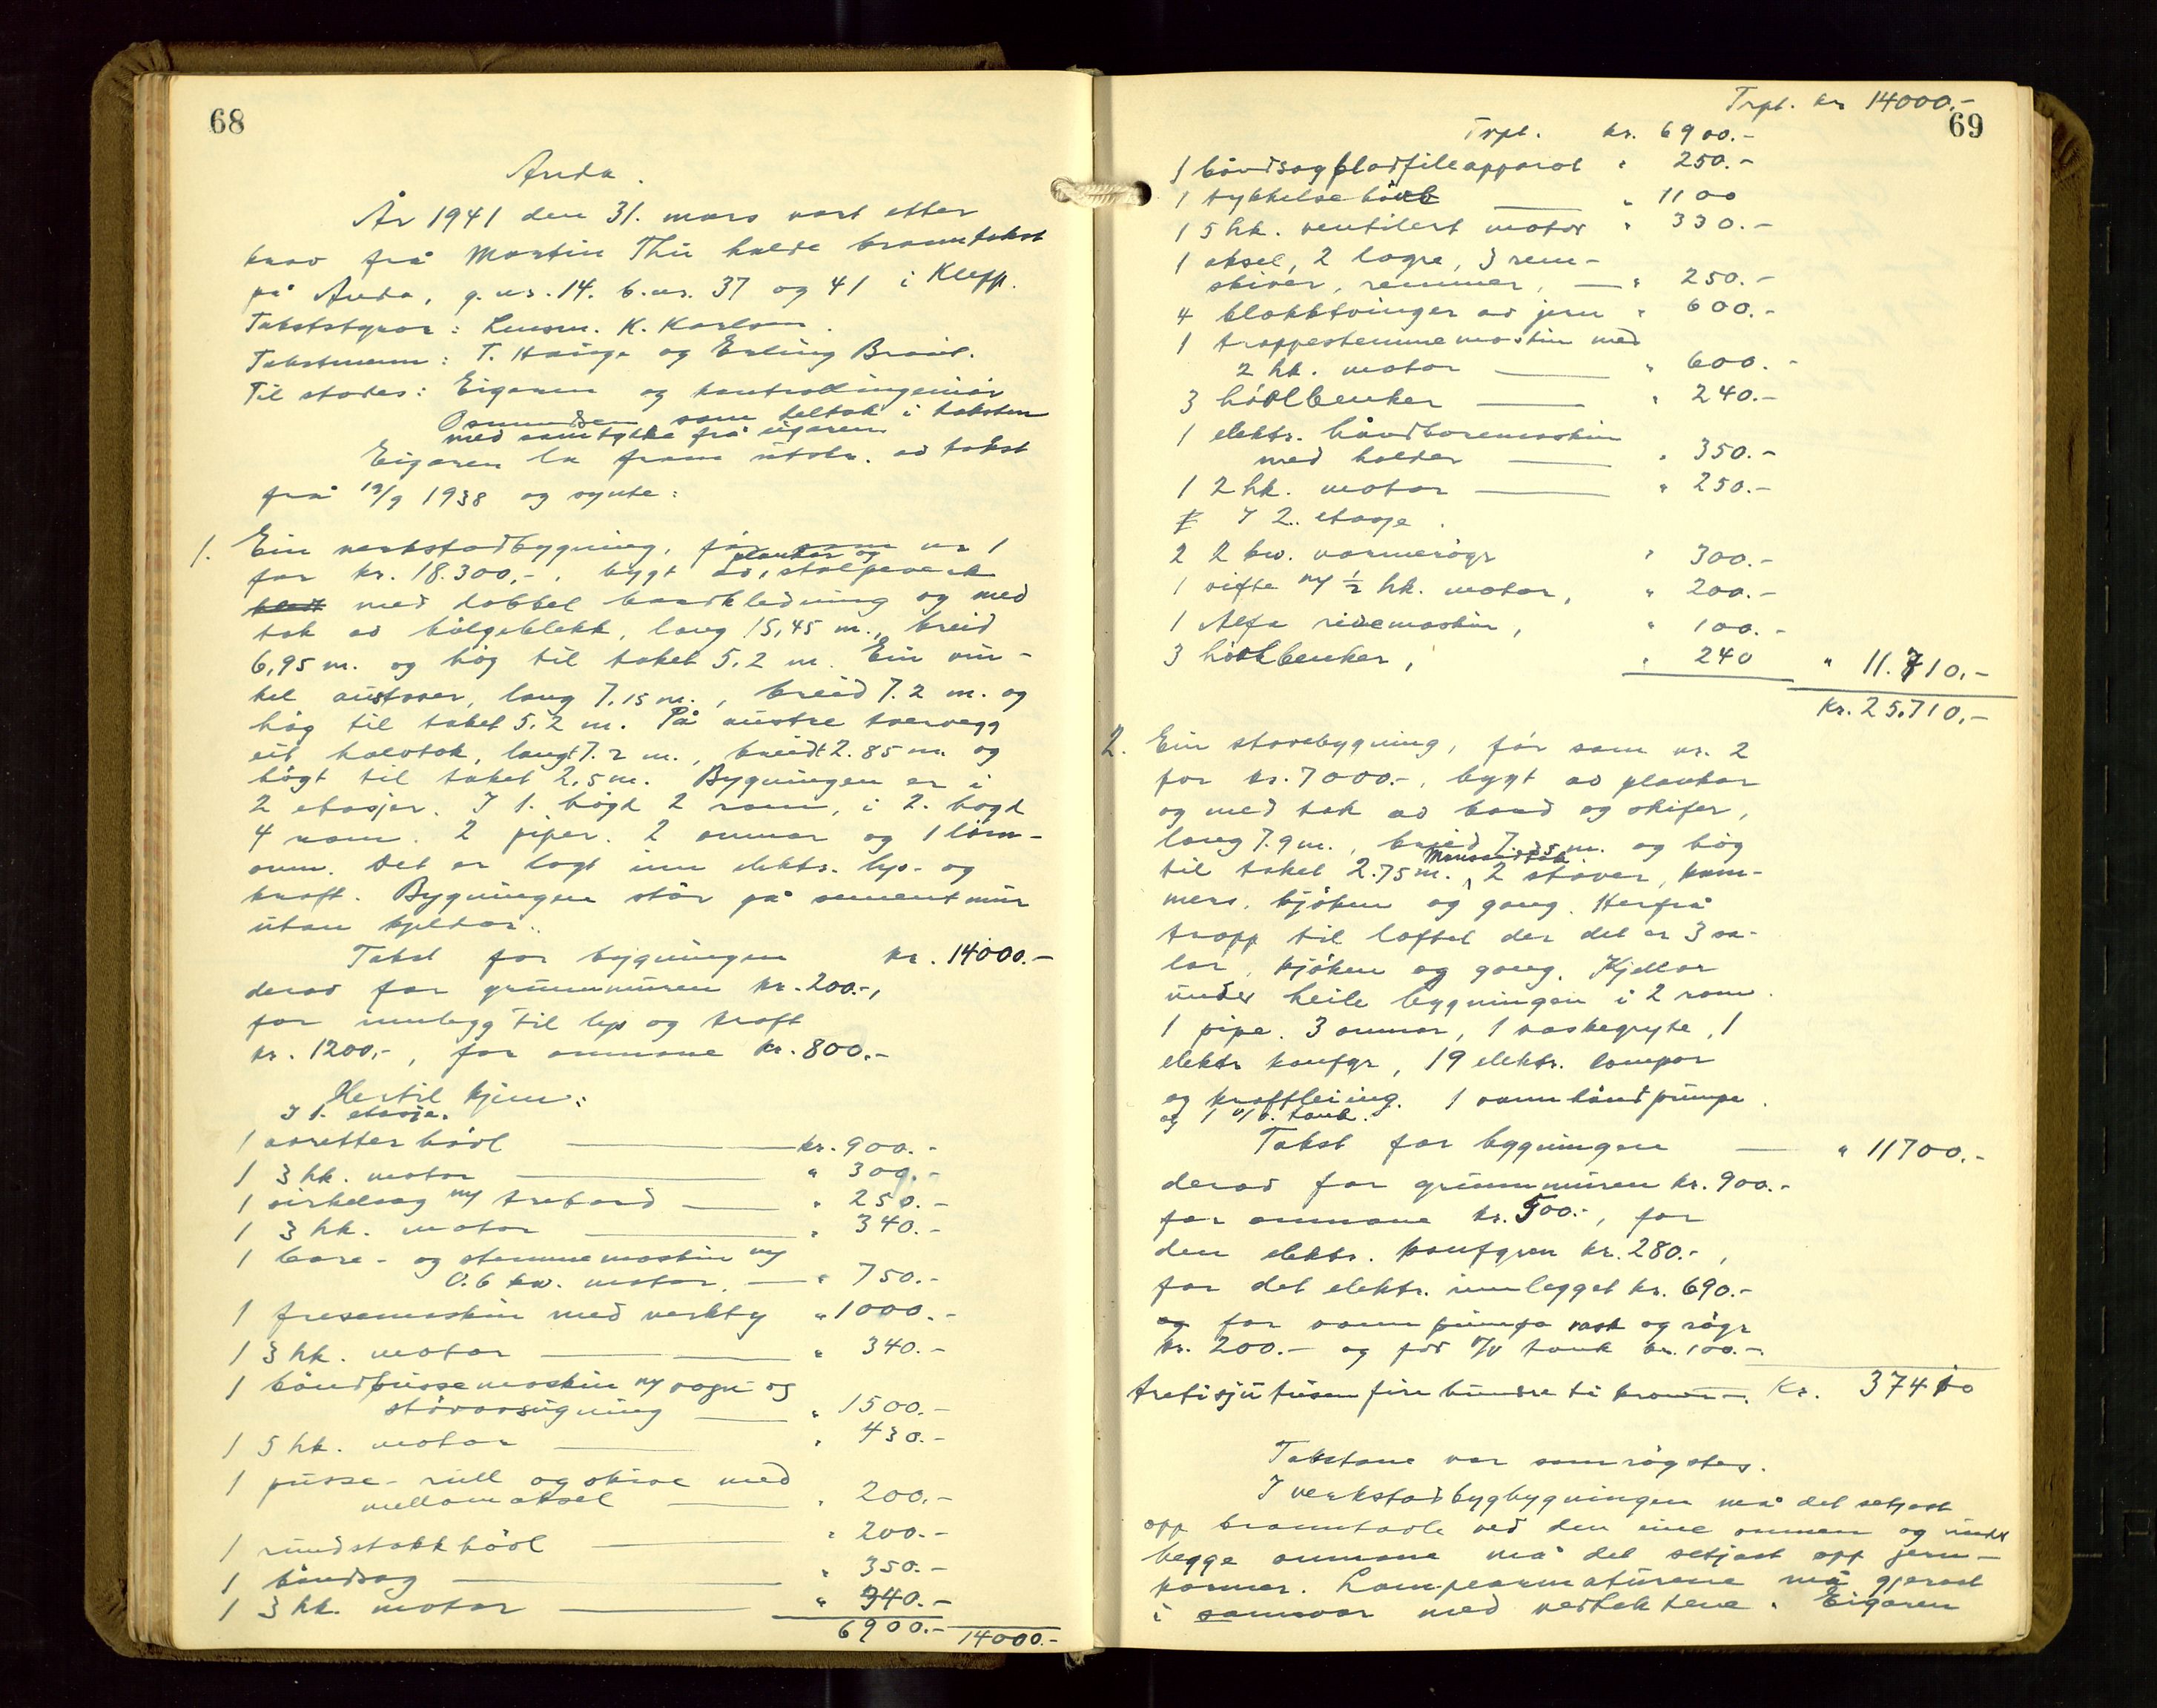 68
Anda.
År 1941 den 31. mars vart etter
krav frå Martin Thu halde branntakst
på Anda, g.nr. 14. b.nr. 37 og 41 i Klepp.
Takststyrar: Lensm. K. Karlsen.
Takstmenn: T. Hauge og Erling Braut.
Til stades: Eigaren og kontrollingeniør
Osmundsen som deltok i taksten
med samtykke frå eigaren.
Eigaren la fram utskr. av takst
frå 19/9 1938 og synte:
1. Ein verkstadbygning, før som nr 1
for kr. 18.300,-, bygt av plankar og stolpeverk
med dobbel bordkledning og med
tak av bølgeblekk, lang 15,45 m., breid
6,95 m. og høg til taket 5.2 m. Ein vin-
kel austover, lang 7.15 m., breid 7.2 m. og
høg til taket 5.2 m. På austre tvervegg
eit halvtak, langt 7.2 m., breidt 2.85 m. og
høgt til taket 2.5 m. Bygningen er i
2 etasjer. I 1. høgd 2 rom, i 2. høgd
4 rom. 2 piper. 2 omnar og 1 lim-
omn. Det er lagt inn elektr. lys- og
kraft. Bygningen står på sementmur
utan kjellar.
Takst for bygningen kr. 14000.-
derav for grunnmuren kr. 200.-,
for innlegg til lys og kraft
kr. 1200,-, for omnane kr. 800.-
Hertil kjem:
I 1. etasje.
1 avretterhøvl kr. 900.-
1 3 hk. motor " 300.-
1 sirkelsag m/ trebord " 250.-
1 3 hk. motor " 340.-
1 bore- og stemmemaskin m/
0.6 kw. motor, " 750.-
1 fresemaskin med verkty " 1000.-
1 3 hk. motor " 340.-
1 båndpussemaskin m/ vogn og
støvavsugning " 1500.-
1 5 hk. motor " 430.-
1 pusse- rull og skive med
mellomaksel " 200.-
1 rundstokkhøvl " 200.-
1 båndsag " 350.-
1 3 hk. motor " 340.-
6900.- 14000.-
69
Trpt. kr 14000.-
Trpt. kr. 6900.-
1 båndsagbladfileapparat " 250.-
1 tykkelsehøvl " 1100
1 5 hk. ventilert motor " 330.-
1 aksel, 2 lagre, 3 rem-
skiver, remmer, " 250.-
4 blokktvinger av jern " 600.-
1 trappestemmemaskin med
2 hk. motor " 600.-
3 høvlbenker " 240.-
1 elektr. håndboremaskin
med holder " 350.-
1 2 hk. motor " 250.-
I 2. etasje.
2 2 kw. varmerøyr " 300.-
1 vifte m/ 1/2 hk. motor, " 200.-
1 Alfa rivemaskin, " 100.-
3 høvlbenker, " 240 " 11.710,-
Kr. 25.710,-
2. Ein stovebygning, før som nr. 2
for kr. 7000.-, bygt av plankar
og med tak av bord og skifer,
lang 7.9 m., breid 7.35 m. og høg
til taket 2.75 m. Mansardtak. 2 stover, kam-
mers, kjøken og gang. Herfrå
trapp til loftet der det er 3 sa-
lar, kjøken og gang. Kjellar
under heile bygningen i 2 rom.
1 pipe. 3 omnar, 1 vaskegryte, 1
elektr komfyr, 19 elektr. lampor
og kraftleiing. 1 vann håndpumpe.
og 1 v/v. tank.
Takst for bygningen " 11700.-
derav for grunnmuren kr. 900.-
for omnane kr. 500.-, for
den elektr. komfyren kr. 280.-,
for det elektr. innlegget kr. 690.-
for vann pumpa vask og røyr
kr. 200.- og for v/v tank kr. 100.-
trettisjutusen fire hundre ti kroner. Kr. 37410
Takstane var samrøystes.
I verkstadbygbygningen må det setjast
opp branntavle ved den eine omnen og under
begge omnane må det setjast opp jern-
karmer. Lampearmaturene må gjerast
i samsvar med vedtektene. Eigaren